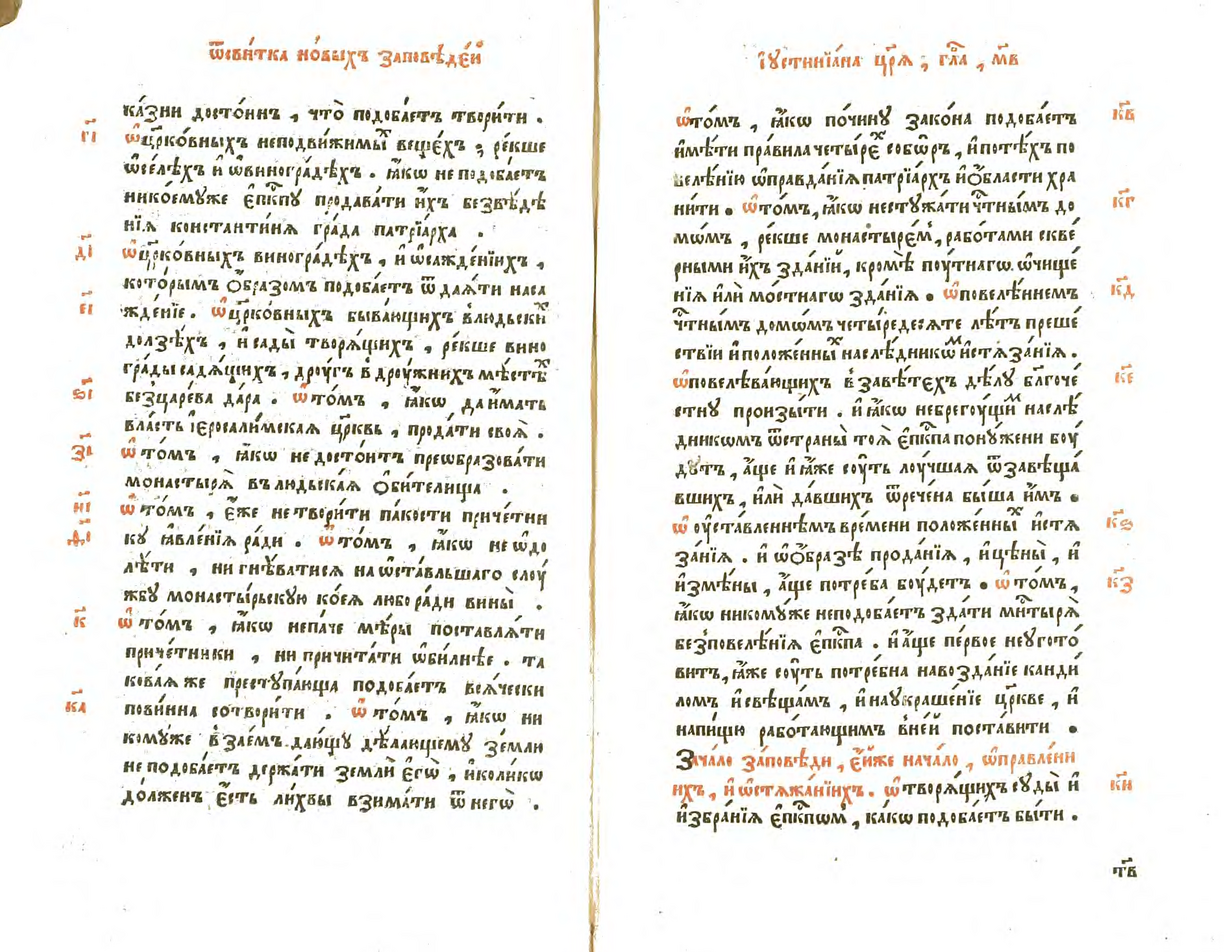 ѿсви́тка но́выхъ за́повѣдеи
ка́зни досто́инъ , что̀ подоба́етъ твори́ти .
г҃і ѡ҆цр҃ко́вныхъ неподви́жимыⷯ ве́щехъ , ре́кше
ѡ҆се́лѣхъ и҆ ѡ҆виногра́дѣхъ . ꙗ҆́кѡ не подоба́етъ
нико́емуже є҆пⷭ҇кпу продава́ти и҆́хъ безвѣ́дѣ
нїѧ константи́нѧ гра́да патрїа́рха .
д҃і ѡ҆цр҃ко́вныхъ виногра́дѣхъ , и҆ ѡ҆сажде́нїихъ ,
кото́рымъ ѻ҆́бразомъ подоба́етъ ѿ даѧ́ти наса
е҃і жде́нїе . ѡ҆цр҃ко́вныхъ быва́ющихъ в̾людьскиⷯ
долзѣ́хъ , и҆ сады̀ творѧ́щихъ , ре́кше вино
гра́ды садѧ́щихъ , дроу́гъ в̾ дроу́жнихъ мѣ́стѣⷯ
ѕ҃і безца́рева да́ра . ѡ҆ то́мъ , ꙗ҆́кѡ да и҆́мать
вла́сть і҆еросали́мскаѧ цр҃квь , прода́ти своѧ̀ .
з҃і ѡ҆ то́мъ , ꙗ҆́кѡ не досто́итъ преѡбразова́ти
монастырѧ̀ въ людьскаѧ ѻ҆би́телища .
н҃і ѡ҆ то́мъ , є҆́же не твори́ти па́кости приче́тни
ѳ҃і ку ꙗ҆вле́нїѧ ра́ди . ѡ҆ то́мъ , ꙗ҆́кѡ не ѡ҆до
лѣ́ти , ни гнѣ́ватисѧ на ѡ҆ста́вльшаго слоу́
жбу монасты́рьскую ко́еѧ любо ра́ди вины̀ .
к҃ ѡ҆ то́мъ , ꙗ҆́кѡ непа́че мѣ́ры поставлѧ́ти
приче́тники , ни причита́ти ѡ҆би́лнѣе . та
кова́ѧ же престу́пающа подоба́етъ всѧ́чески
к҃а пови́нна сотвори́ти . ѡ҆ то́мъ , ꙗ҆́кѡ ни
кому́же в̾ зае́мъ даю́щу дѣ́лающему зе́млю
не подоба́етъ держа́ти землѝ є҆гѡ̀ , и҆коли́кѡ
до́лженъ є҆́сть ли́хвы взима́ти ѿ негѡ̀ .
і҆устинїа́на цр҃ѧ , гл҃а , м҃в
к҃в ѡ҆то́мъ , ꙗ҆́кѡ по чи́ну зако́на подоба́етъ
и҆мѣ́ти пра́вила четы́реⷯ собѡ́ръ , и҆ потѣ́хъ по
велѣ́нїю ѡ҆правда́нїѧ патрїа́рхъ и҆ ѻ҆́бласти хра
к҃г ни́ти . ѡ҆то́мъ , ꙗ҆́кѡ нестужа́ти чⷭ҇тны́мъ до
мѡмъ , ре́кше монастыре́мъ , рабо́тами скве́
рными и҆́хъ зда́нїи , кромѣ̀ поу́тнагѡ ѡ҆чище́
к҃д нїѧ и҆лѝ мо́стнагѡ зда́нїѧ . ѡ҆повелѣ́ннемъ
чⷭ҇тны́мъ домѡ́мъ четы́редесѧте лѣ́тъ преше́
ствїи и҆ положе́нныⷯ наслѣ́дникѡⷨ и҆стѧза́нїѧ .
к҃е ѡ҆повелѣва́ющихъ в̾ завѣ́тѣхъ дѣ́лу бл҃гоче́
стну произы́ти . и҆ ꙗ҆́кѡ небрегоу́щиⷨ наслѣ́
дникѡмъ ѿстраны̀ тоѧ̀ є҆пⷭ҇кпа пону́жени боу́
дутъ , а҆́ще и҆ ꙗ҆́же соу́ть лоу́чшаѧ ѿ завѣща́
вшихъ , и҆лѝ да́вшихъ ѿрече́на бы́ша и҆́мъ .
к҃ѕ ѡ҆ оу҆ста́вленнѣмъ вре́мени положе́нныⷯ и҆стѧ
за́нїѧ . и҆ ѡ҆ѻ҆́бразѣ прода́нїѧ , и҆ цѣны̀ , и҆
к҃з и҆змѣ́ны , а҆́ще потре́ба боу́детъ . ѡ҆ то́мъ ,
ꙗ҆́кѡ никому́же неподоба́етъ зда́ти мⷭ҇нтырѧ̀
без̾повелѣ́нїѧ є҆пⷭ҇кпа . и҆ а҆́ще пе́рвое неугото́
витъ , ꙗ҆́же соу́ть потре́бна на возда́нїе канди́
ломъ и҆ свѣща́мъ , и҆ на украше́нїе цр҃кве , и҆
на пи́щю рабо́тающимъ в̾не́й поста́вити .
Зача́ло за́повѣди , є҆́йже нача́ло , ѡ҆правле́ни
к҃н ихъ , и҆ ѡ҆стѧжа́нїихъ . ѡ҆ творѧ́щихъ суды̀ и҆
и҆збра́нїѧ є҆пⷭ҇кпѡмъ , ка́кѡ подоба́етъ бы́ти .
т҃в